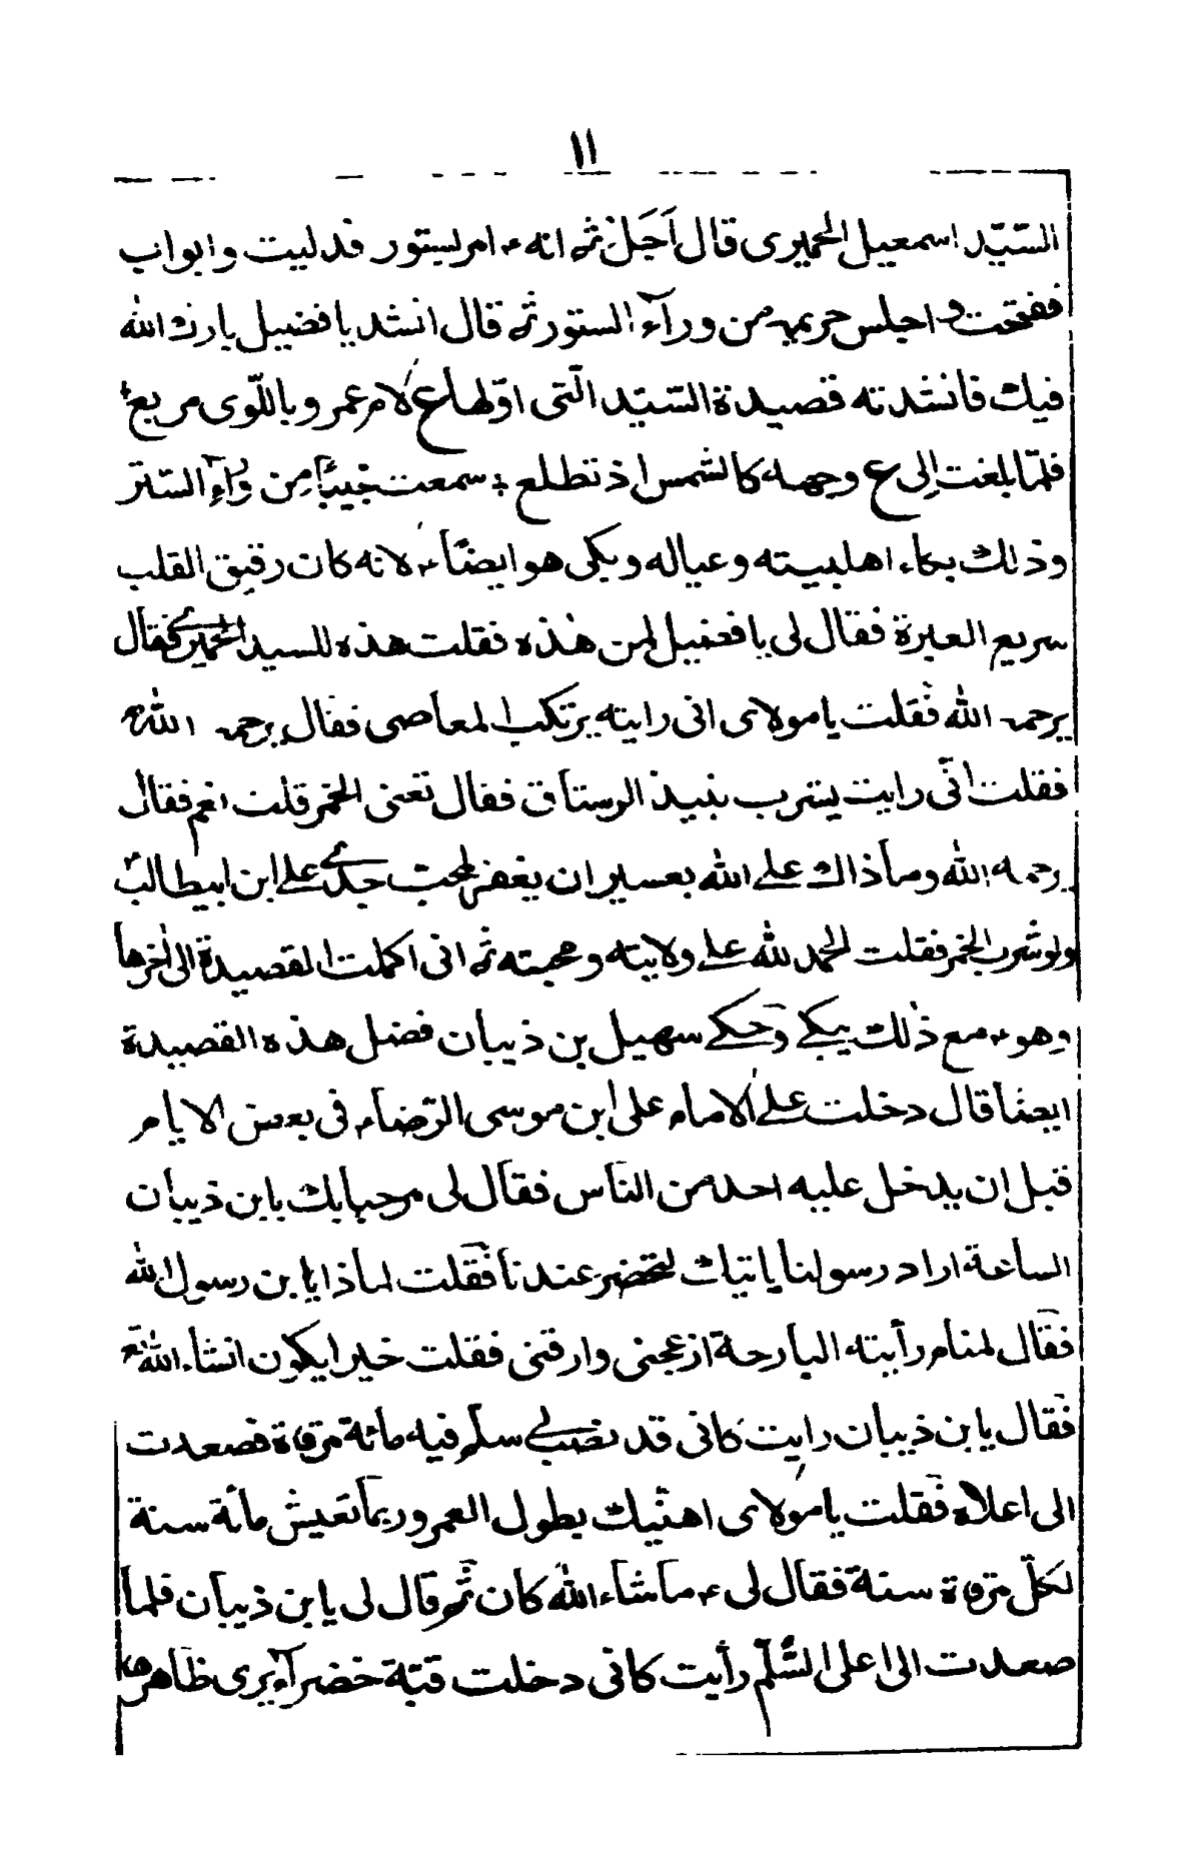 ١١
السّيّد اسمعيل الحميرى قال اَجَل ثم انه ء امر بستور فدليت و ابواب
ففتحت و اجلس حريمه من ورآء الستور ثم قال انشد يا فضيل بارك الله
فيك فانشدته قصيدة السّيّد الّتى اوّلها ع لام عمرو باللّوى مربع
فلمّا بلغت اِلى ع وجهه كالشمس اذ تطلع سمعت نحيبًا مِن ورآءِ السّتر
وذلك بكاء اهلبيته وعياله وبكى هو ايضًا ء لانه كان رقيق القلب
سريع العبرة فقال لى يا فضيل لمن هٰذه فقلت هذه للسيد الحميرى فقال
يرحمه الله فقلت يا مولاى انى رايته يرتكب المعاصى فقال يرحمه الله
فقلت انّى رايت يشرب نبيذ الرستاق فقال تعنى الخمر قلت نعم فقال
يرحمه الله وما ذاك على الله بعسير ان يغفر لمحب جدى على ابن ابيطالب
ولو شرب الخمر فقلت الحمد لله على ولايته ومحبته ثم انى اكملت القصيدة الى اٰخرها
وهو ء مع ذٰلك يبكى وحكى سهيل بن ذيبان فضل هذه القصيدة
ايضا قال دخلت على الامام على ابن موسى الرّضا ء فى بعض الايام
قبل ان يدخل عليه احد من الناس فقال لى مرحبا بك يا بن ذيبان
الساعة اراد رسولنا ياتيك لتحضر عندنا فقلت لماذا يا بن رسول الله
فقال لمنام رأيته البارحة ازعجنى وارقنى فقلت خيرا يكون انشاء الله تع
فقال يا بن ذيبان رايت كانى قد نصب لى سلم فيه مائة مرقاة فصعدت
الى اعلاه فقلت يا مولاى اهنّيك بطول العمر وربما تعيش مائة سنة
لكلّ مرقاة سنة فقال لى ء ما شاء الله كان ثم قال لى يا بن ذيبان فلما
صعدت الى اعلى السُّلّم رأيت كانى دخلت قبّة خضرآء يرى ظاهرها